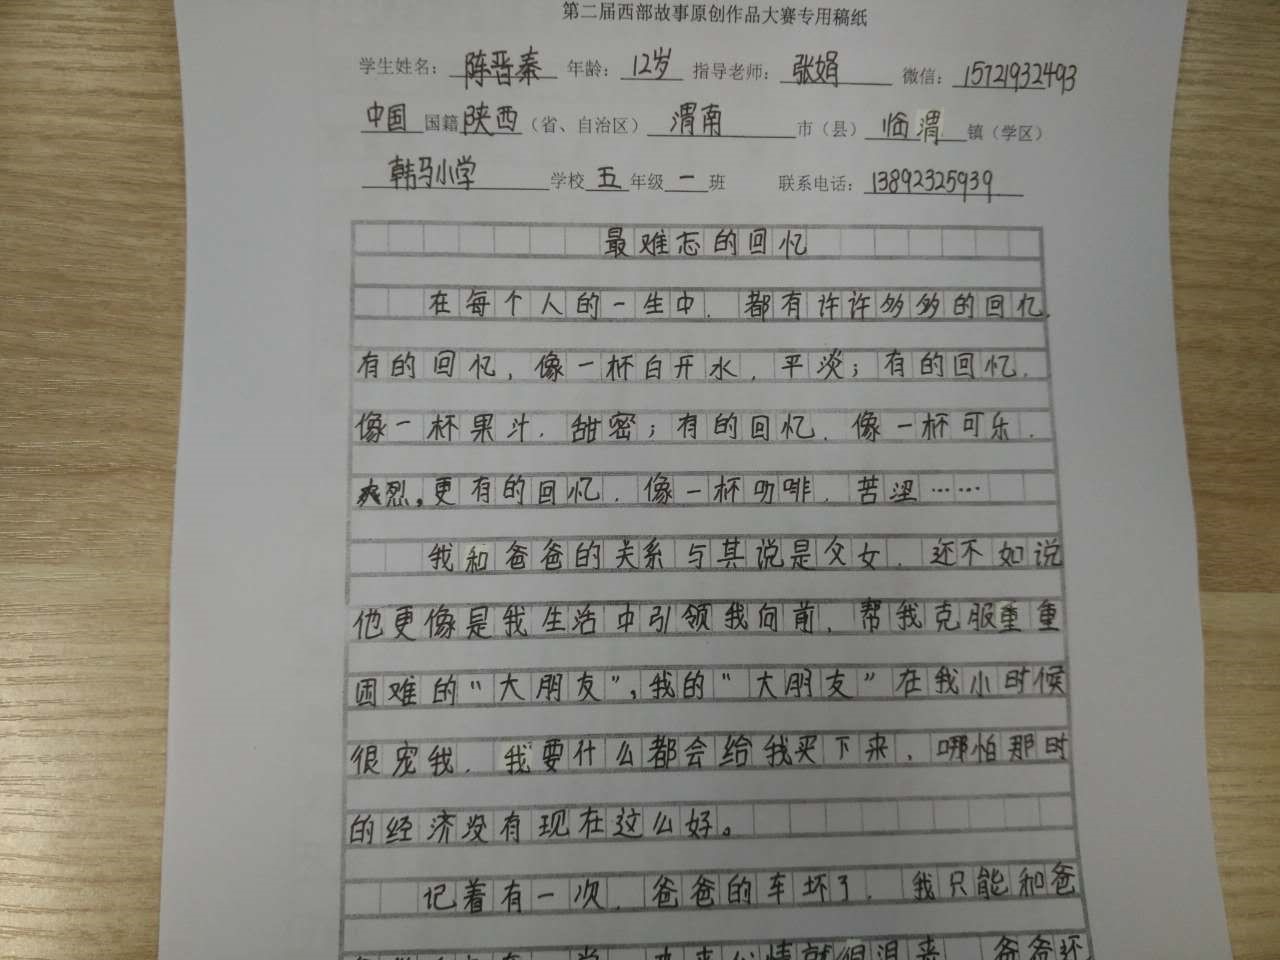 第二届西部故事原创作品大赛专用稿纸
学生姓名：陈晋秦 年龄：12岁 指导老师：张娟 微信：15721932493
中国国籍陕西（省、自治区）渭南市（县）临渭镇（学区）
韩马小学学校五年级一班 联系电话：13892325939
最难忘的回忆
在每个人的一生中，都有许许多多的回忆，
有的回忆，像一杯白开水，平淡；有的回忆，
像一杯果汁，甜密；有的回忆，像一杯可乐，
爽烈，更有的回忆，像一杯叻啡，苦涩……
我和爸爸的关系与其说是父女，还不如说
他更像是我生活中引领我向前，帮我克服重重
困难的“大朋友”，我的“大朋友”在我小时候
很宠我，我要什么都会给我买下来，哪怕那时
的经济没有现在这么好。
记着有一次，爸爸的车坏了，我只能和爸
本来心情就很沮丧，爸爸还